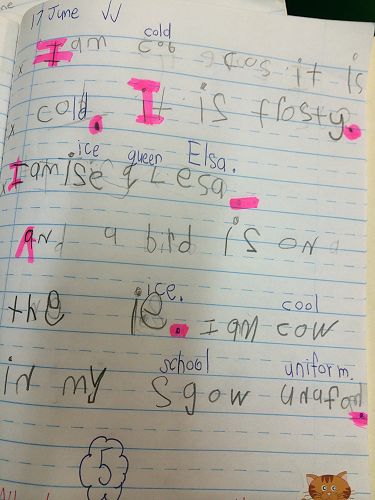 17 June
cold
I am cob cos it is
cold. It is flosty.
ice queen Elsa.
I am ise q L esa
And a bird is on
ice.
the ie. I am cow
cool
school uniform.
in my sgow unafom
5